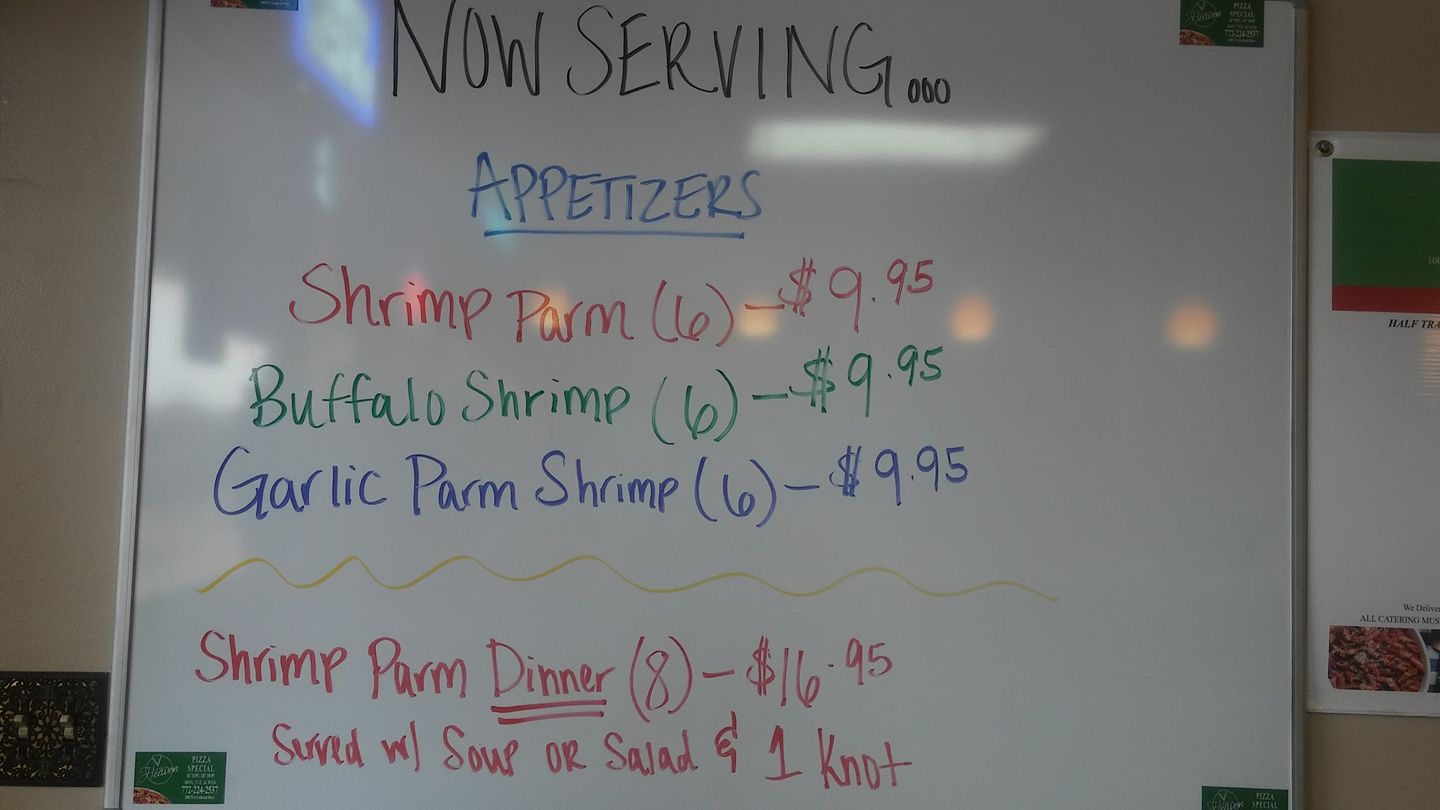 NOW SERVING...
APPETIZERS
Shrimp Parm (6) - $9.95
Buffalo Shrimp (6) - $9.95
Garlic Parm Shrimp (6) - $9.95
Shrimp Parm Dinner (8) - $16.95
Served w/ Soup OR Salad & 1 Knot
Heaven
PIZZA
SPECIAL
772-224-2537
Heaven
PIZZA
SPECIAL
772-224-2537
PIZZA
SPECIAL
HALF TRA
We Deliver
ALL CATERING MUS